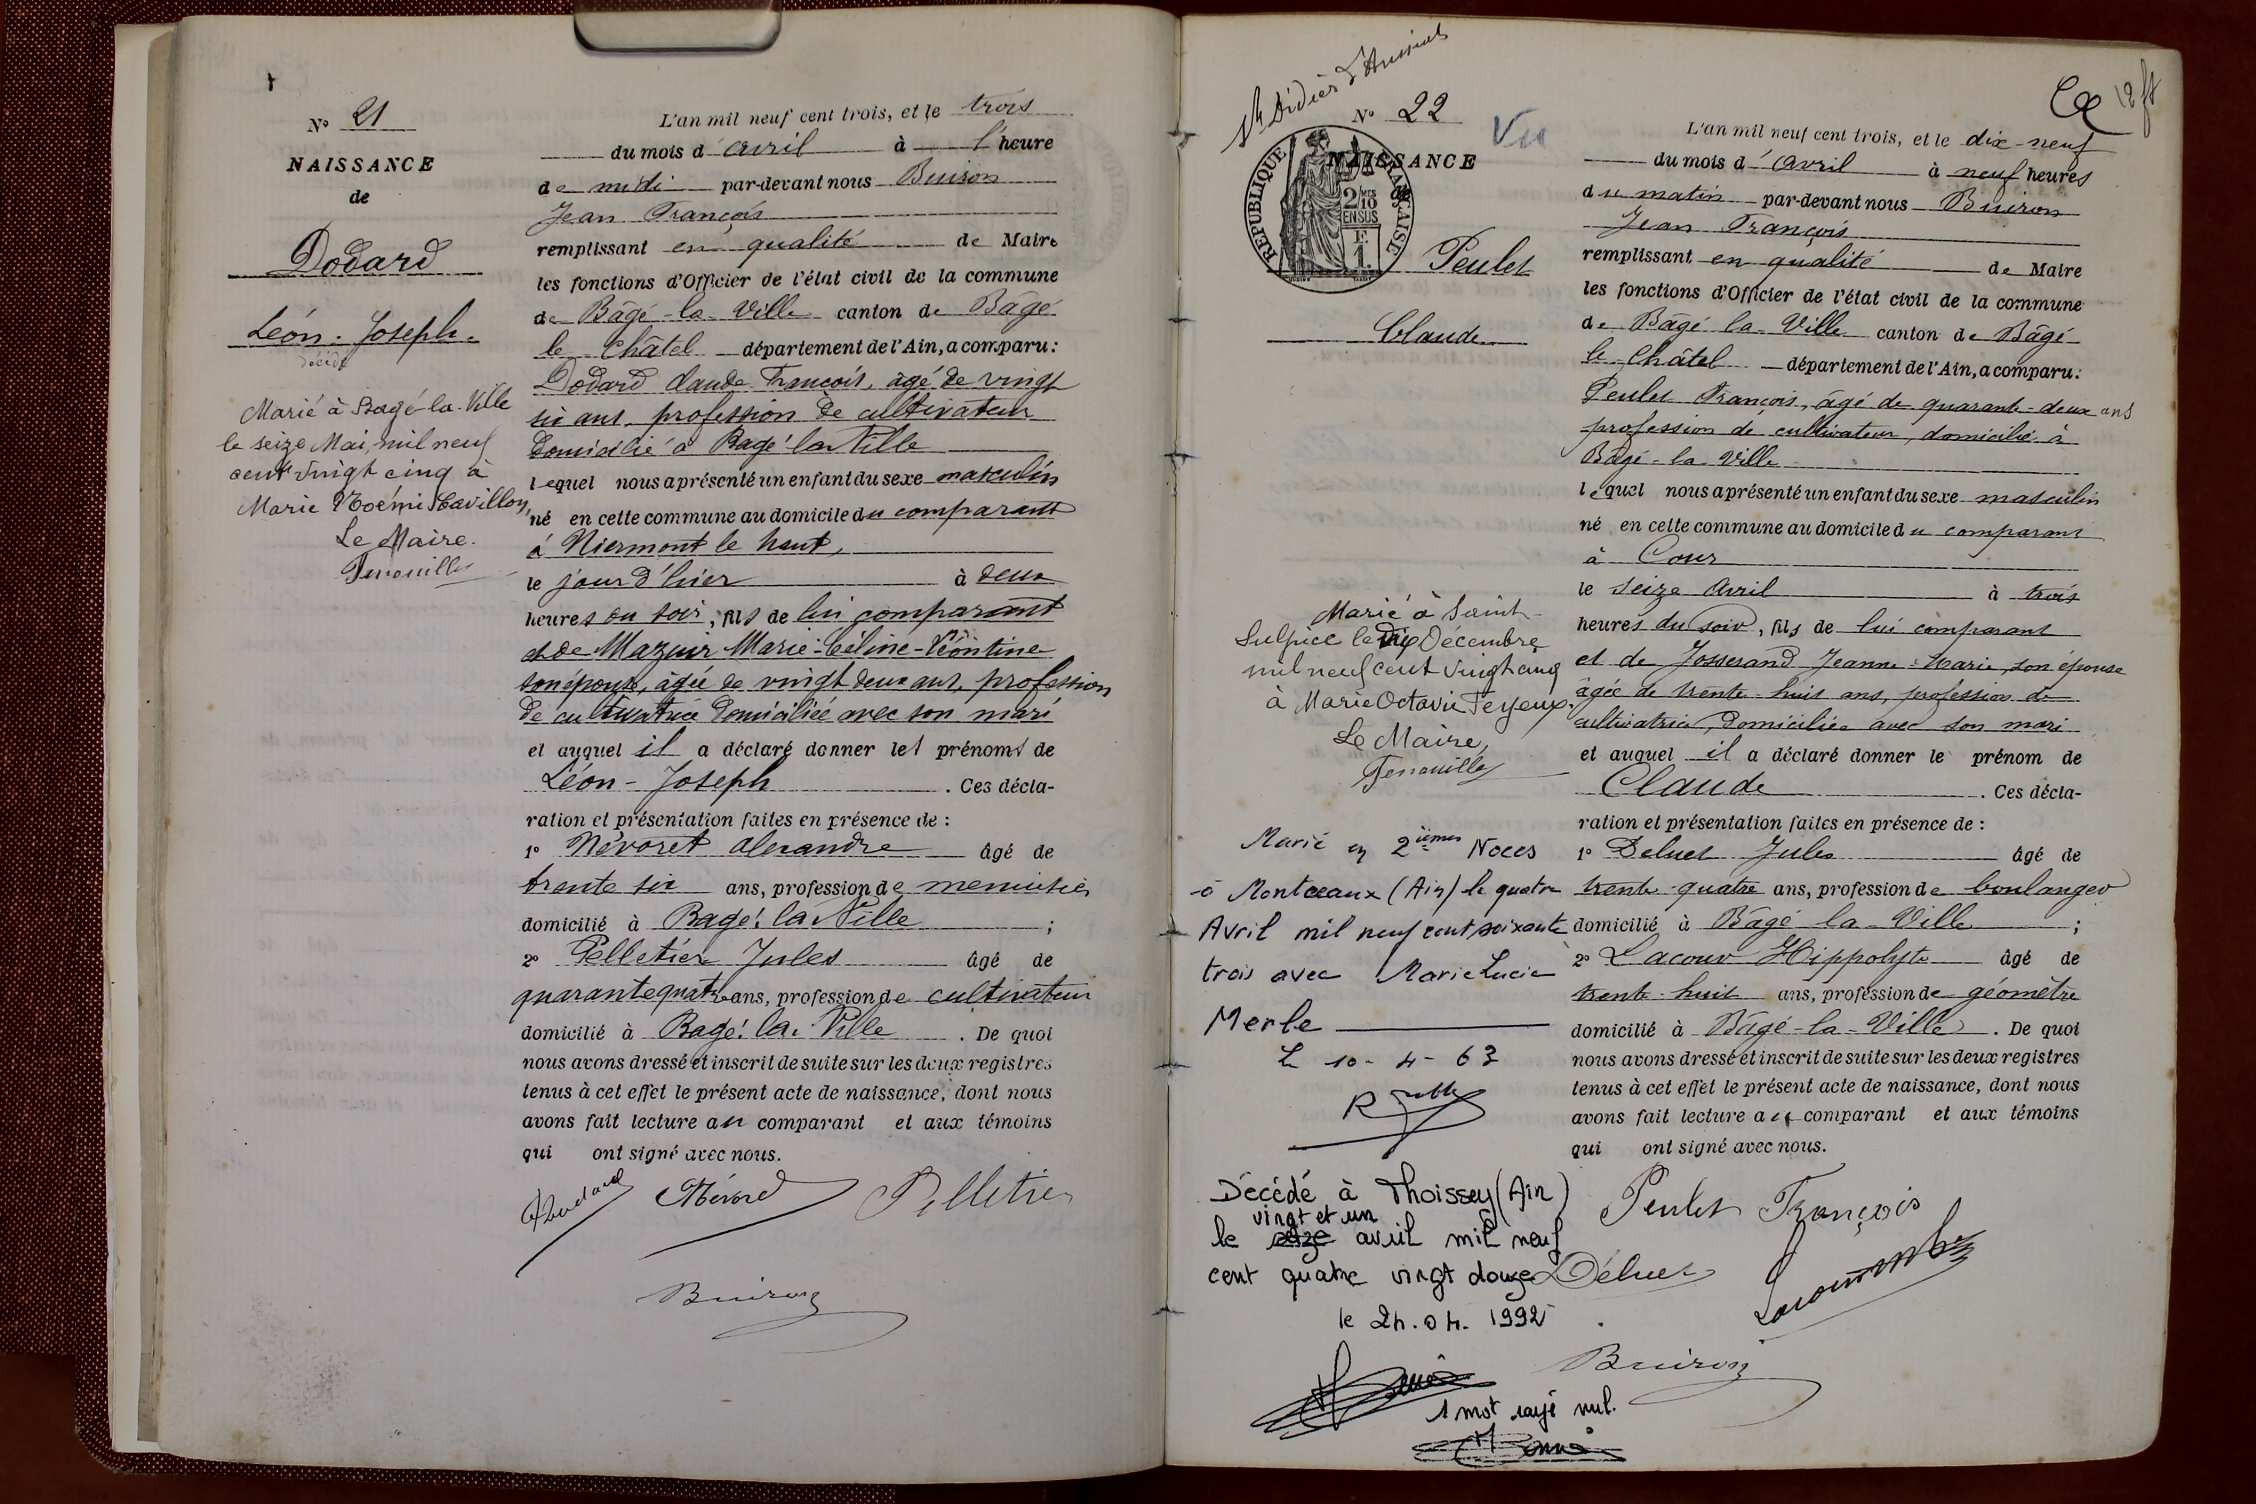 N° 21
NAISSANCE
de
Dodard
Léon-Joseph.
décédé
Marié à Bagé-la-Ville
le seize Mai, mil neuf
cent vingt cinq à
Marie Noémi
Le Maire.
L'an mil neuf cent trois, et le trois
du mois d'avril à l'heure
de midi par-devant nous Buiron
Jean François
remplissant en qualité de Maire
les fonctions d'Officier de l'état civil de la commune
de Bâgé-la-Ville canton de Bâgé
le Châtel département de l'Ain, a comparu:
Dodard Claude François, âgé de vingt
six ans, profession de cultivateur
domicilié à Bagé la Ville
lequel nous a présenté un enfant du sexe masculin
né en cette commune au domicile du comparant
à Niermont le haut,
le jour d'hier à deux
heures du soir, fils de lui comparant
et de Mazuir Marie-Céline-Léontine
son épouse, âgée de vingt deux ans, profession
de cultivatrice domiciliée avec son mari
et auquel il a déclaré donner les prénoms de
Léon-Joseph. Ces décla-
ration et présentation faites en présence de:
1° Névoret Alexandre âgé de
trente six ans, profession de menuisier
domicilié à Bagé la Ville;
2° Pelletier Jules âgé de
quarante quatre ans, profession de cultivateur
domicilié à Bagé la Ville. De quoi
nous avons dressé et inscrit de suite sur les deux registres
tenus à cet effet le présent acte de naissance, dont nous
avons fait lecture au comparant et aux témoins
qui ont signé avec nous.
Dodard Névoret Pelletier
Buiron
St Didier d'Aussiat
N° 22
Vu
NAISSANCE
de
REPUBLIQUE FRANÇAISE
2/10 EN SUS
F. 1.
Peulet
Claude
Marié à Saint-
Sulpice le dix Décembre
mil neuf cent vingt cinq
à Marie Octavie
Le Maire,
Marié en 2ièmes Noces
à Montceaux (Ain) le quatre
Avril mil neuf cent soixante
trois avec Marie Lucie
Merle
Le 10-4-63
Décédé à Thoissey (Ain)
vingt et un
le seize avril mil neuf
cent quatre vingt douze
le 24.04.1992
1 mot rayé nul.
L'an mil neuf cent trois, et le dix-neuf
du mois d'avril à neuf heures
du matin par-devant nous Buiron
Jean François
remplissant en qualité de Maire
les fonctions d'Officier de l'état civil de la commune
de Bâgé-la-Ville canton de Bâgé
le Châtel département de l'Ain, a comparu:
Peulet François, âgé de quarante-deux ans
profession de cultivateur, domicilié à
Bâgé-la-Ville
lequel nous a présenté un enfant du sexe masculin
né en cette commune au domicile du comparant
à Cour
le seize avril à trois
heures du soir, fils de lui comparant
et de Josserand Jeanne-Marie, son épouse
âgée de trente-huit ans, profession de
cultivatrice, domiciliée avec son mari
et auquel il a déclaré donner le prénom de
Claude. Ces décla-
ration et présentation faites en présence de:
1° Deluet Jules âgé de
trente-quatre ans, profession de boulanger
domicilié à Bâgé-la-Ville;
2° Lacour Hippolyte âgé de
trente-huit ans, profession de géomètre
domicilié à Bâgé-la-Ville. De quoi
nous avons dressé et inscrit de suite sur les deux registres
tenus à cet effet le présent acte de naissance, dont nous
avons fait lecture au comparant et aux témoins
qui ont signé avec nous.
Peulet François
Déluet
Buiron